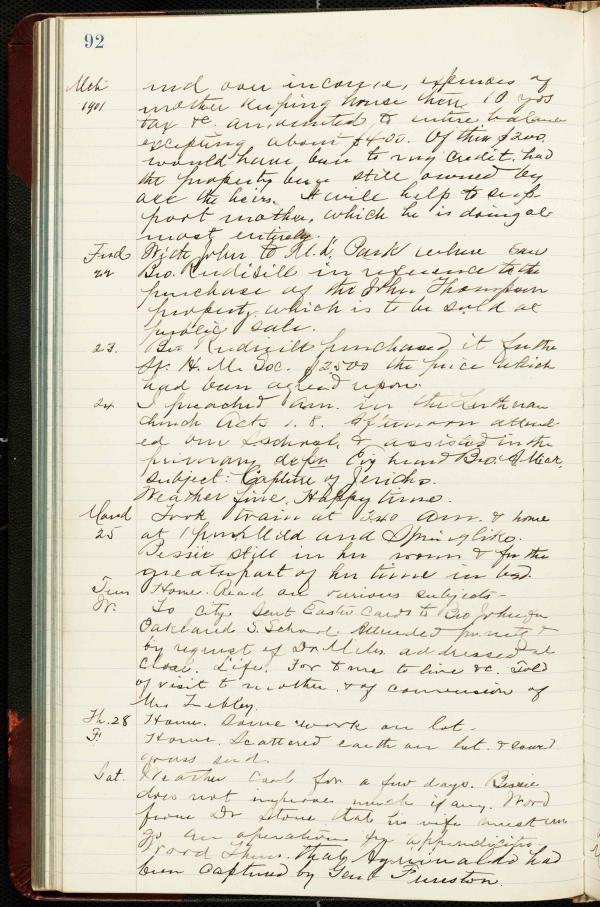 92
Mch and over income, expenses of
1901 mother keeping house then, 10 yrs
tax &c. amounted to entire balance
excepting about $400. Of this $200
would have been to my credit had
the property been still owned by
all the heirs. It will help to sup-
port mother, which he is doing al
most entirely.
Frid With John to M.H. Park where saw
22 Bro. Rudisill in reference to the
purchase of the John Thompson
property, which is to be sold at
public sale.
23. Bro Rudisill purchased it for the
H. M. Soc. $2500 the price which
had been agreed upon.
24 I preached Am. in the Lutheran
church Acts 1.8. Afternoon attend
ed our S.school, & assisted in the
primary dept. Evg heard Bro.
subject: Capture of Jericho.
Weather fine. Happy time.
Mond Took train at 7.40 Am. & home
25 at 1 pm. Mild and Springlike.
Bessie still in her room & for the
greater part of her time in bed.
Tues Home. Read on various subjects -
W. To city. Sent Easter cards to Bro John for
Oakland S. School. Attended &
by request of Dr Miles addressed at
close. Life. For to me to live &c. Told
of visit to mother & of conversion of
Mrs Zebley.
Th. 28 Home. Some work on lot.
F Home. Scattered earth on lot. & sowed
grass seed.
Sat. Weather cool for a few days. Bessie
does not improve much if any. Word
from Dr Stone that his wife must un
go an operation for appendicitis.
Word Thurs. that Aguinaldo had
been captured by Genl Funston.